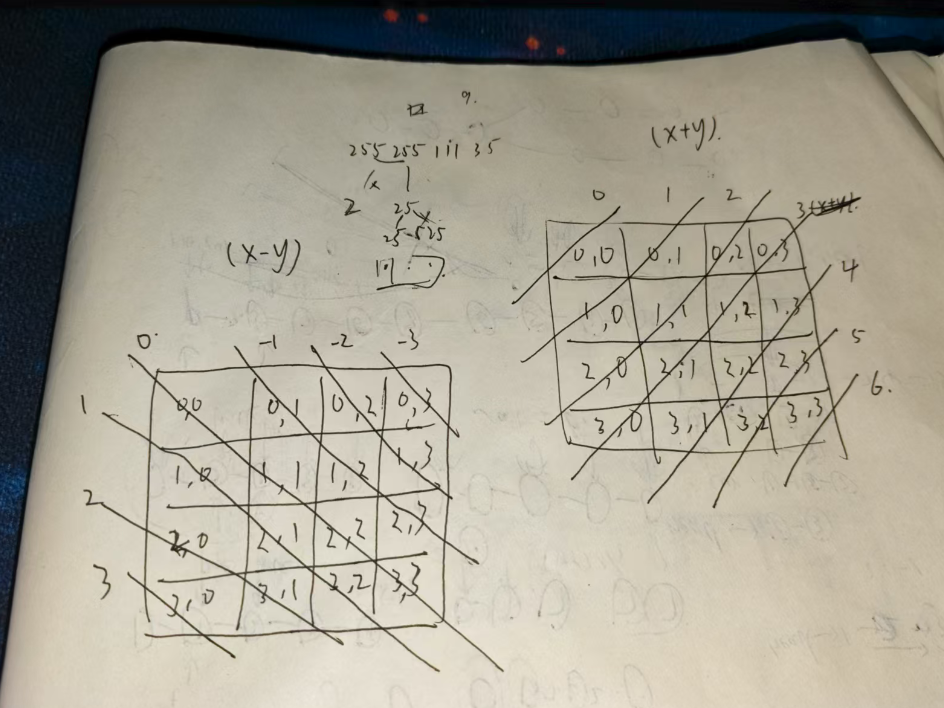 255 255 111 35
2 25
25 525
(x-y)
0 -1 -2 -3
1
2
3
0,0 0,1 0,2 0,3
1,0 1,1 1,2 1,3
2,0 2,1 2,2 2,3
3,0 3,1 3,2 3,3
(x+y).
0 1 2 3
4
5
6.
0,0 0,1 0,2 0,3
1,0 1,1 1,2 1,3
2,0 2,1 2,2 2,3
3,0 3,1 3,2 3,3